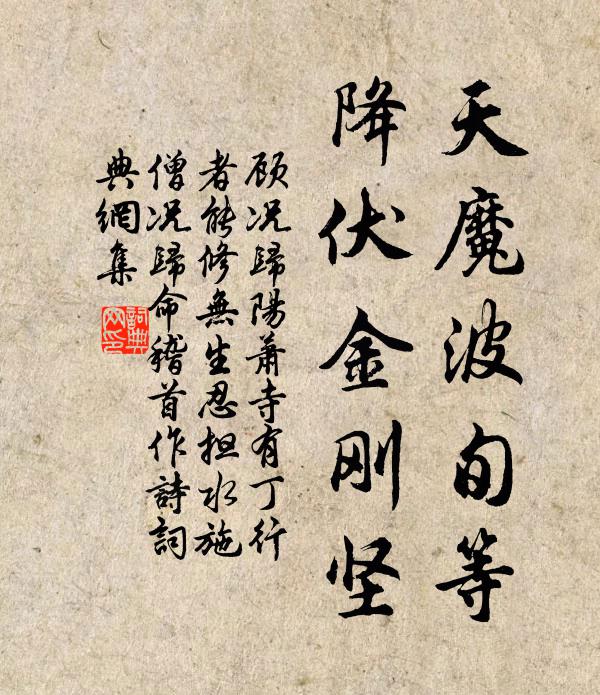 天魔波旬等
降伏金刚坚
顾况歸陽萧寺有丁行
者能修無生忍担水施
僧况歸命稽首作詩詞
典網集
詞典
网印